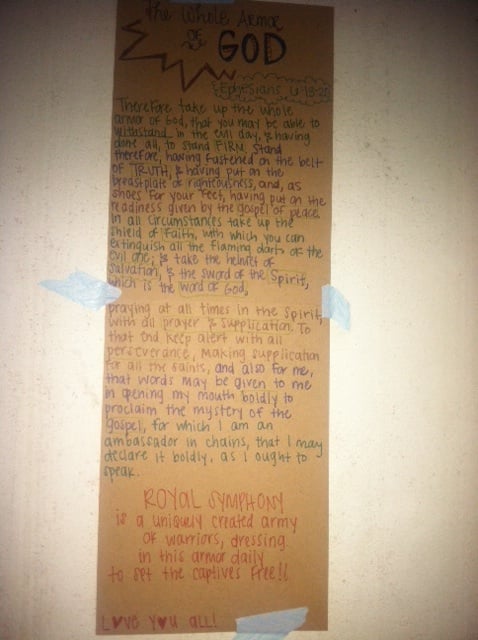 The Whole Armor
OF
GOD
Ephesians 6:13-20
Therefore take up the whole
armor of God, that you may be able to
withstand in the evil day, & having
done all, to stand FIRM. Stand
therefore, having fastened on the belt
OF TRUTH, & having put on the
breastplate of righteousness, and, as
shoes for your feet, having put on the
readiness given by the gospel of peace.
In all circumstances take up the
shield of Faith, with which you can
extinguish all the flaming darts of the
evil one; & take the helmet of
salvation, & the sword of the Spirit,
which is the word of God,
praying at all times in the Spirit,
with all prayer & supplication. To
that end keep alert with all
perseverance, making supplication
for all the saints, and also for me,
that words may be given to me
in opening my mouth boldly to
proclaim the mystery of the
gospel, for which I am an
ambassador in chains, that I may
declare it boldly, as I ought to
speak.
ROYAL SYMPHONY
is a uniquely created army
of warriors, dressing
in this armor daily
to set the captives free!!
L♥ve y♥u all!